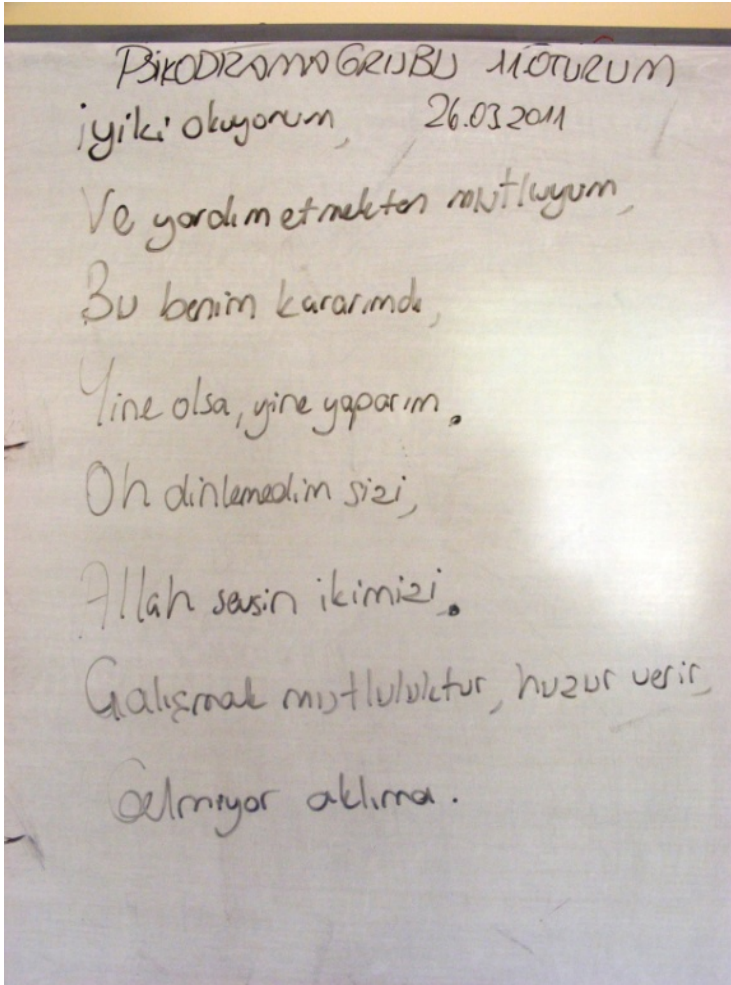 PSİKODRAMA GRUBU 11.OTURUM
iyiki okuyorum, 26.03.2011
Ve yardım etmekten mutluyum,
Bu benim kararımdı,
Yine olsa, yine yaparım.
Oh dinlemedim sizi,
Allah sevsin ikimizi.
Çalışmak mutluluktur, huzur verir,
Gelmıyor aklıma.